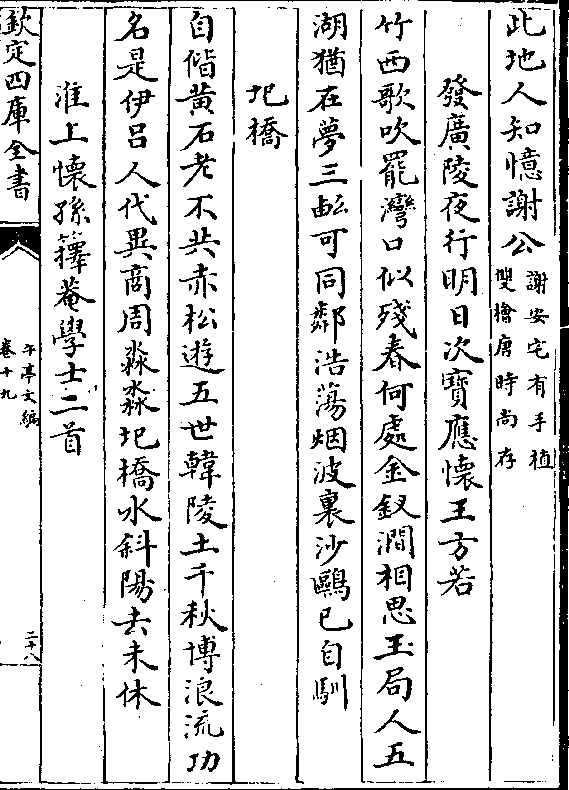 此地人知憶謝公謝安宅有手植
雙檜唐時尚存
發廣陵夜行明日次寶應懷王方若
竹西歌吹罷灣口似殘春何處金釵澗相思玉局人五
湖猶在夢三畝可同鄰浩蕩烟波裏沙鷗已自馴
圯橋
自偕黃石老不共赤松遊五世韓陵土千秋博浪流功
名是伊吕人代異商周淼淼圯橋水斜陽去未休
淮上懷孫籜菴學士二首
欽定四庫全書
午亭文編
卷十九
二十八